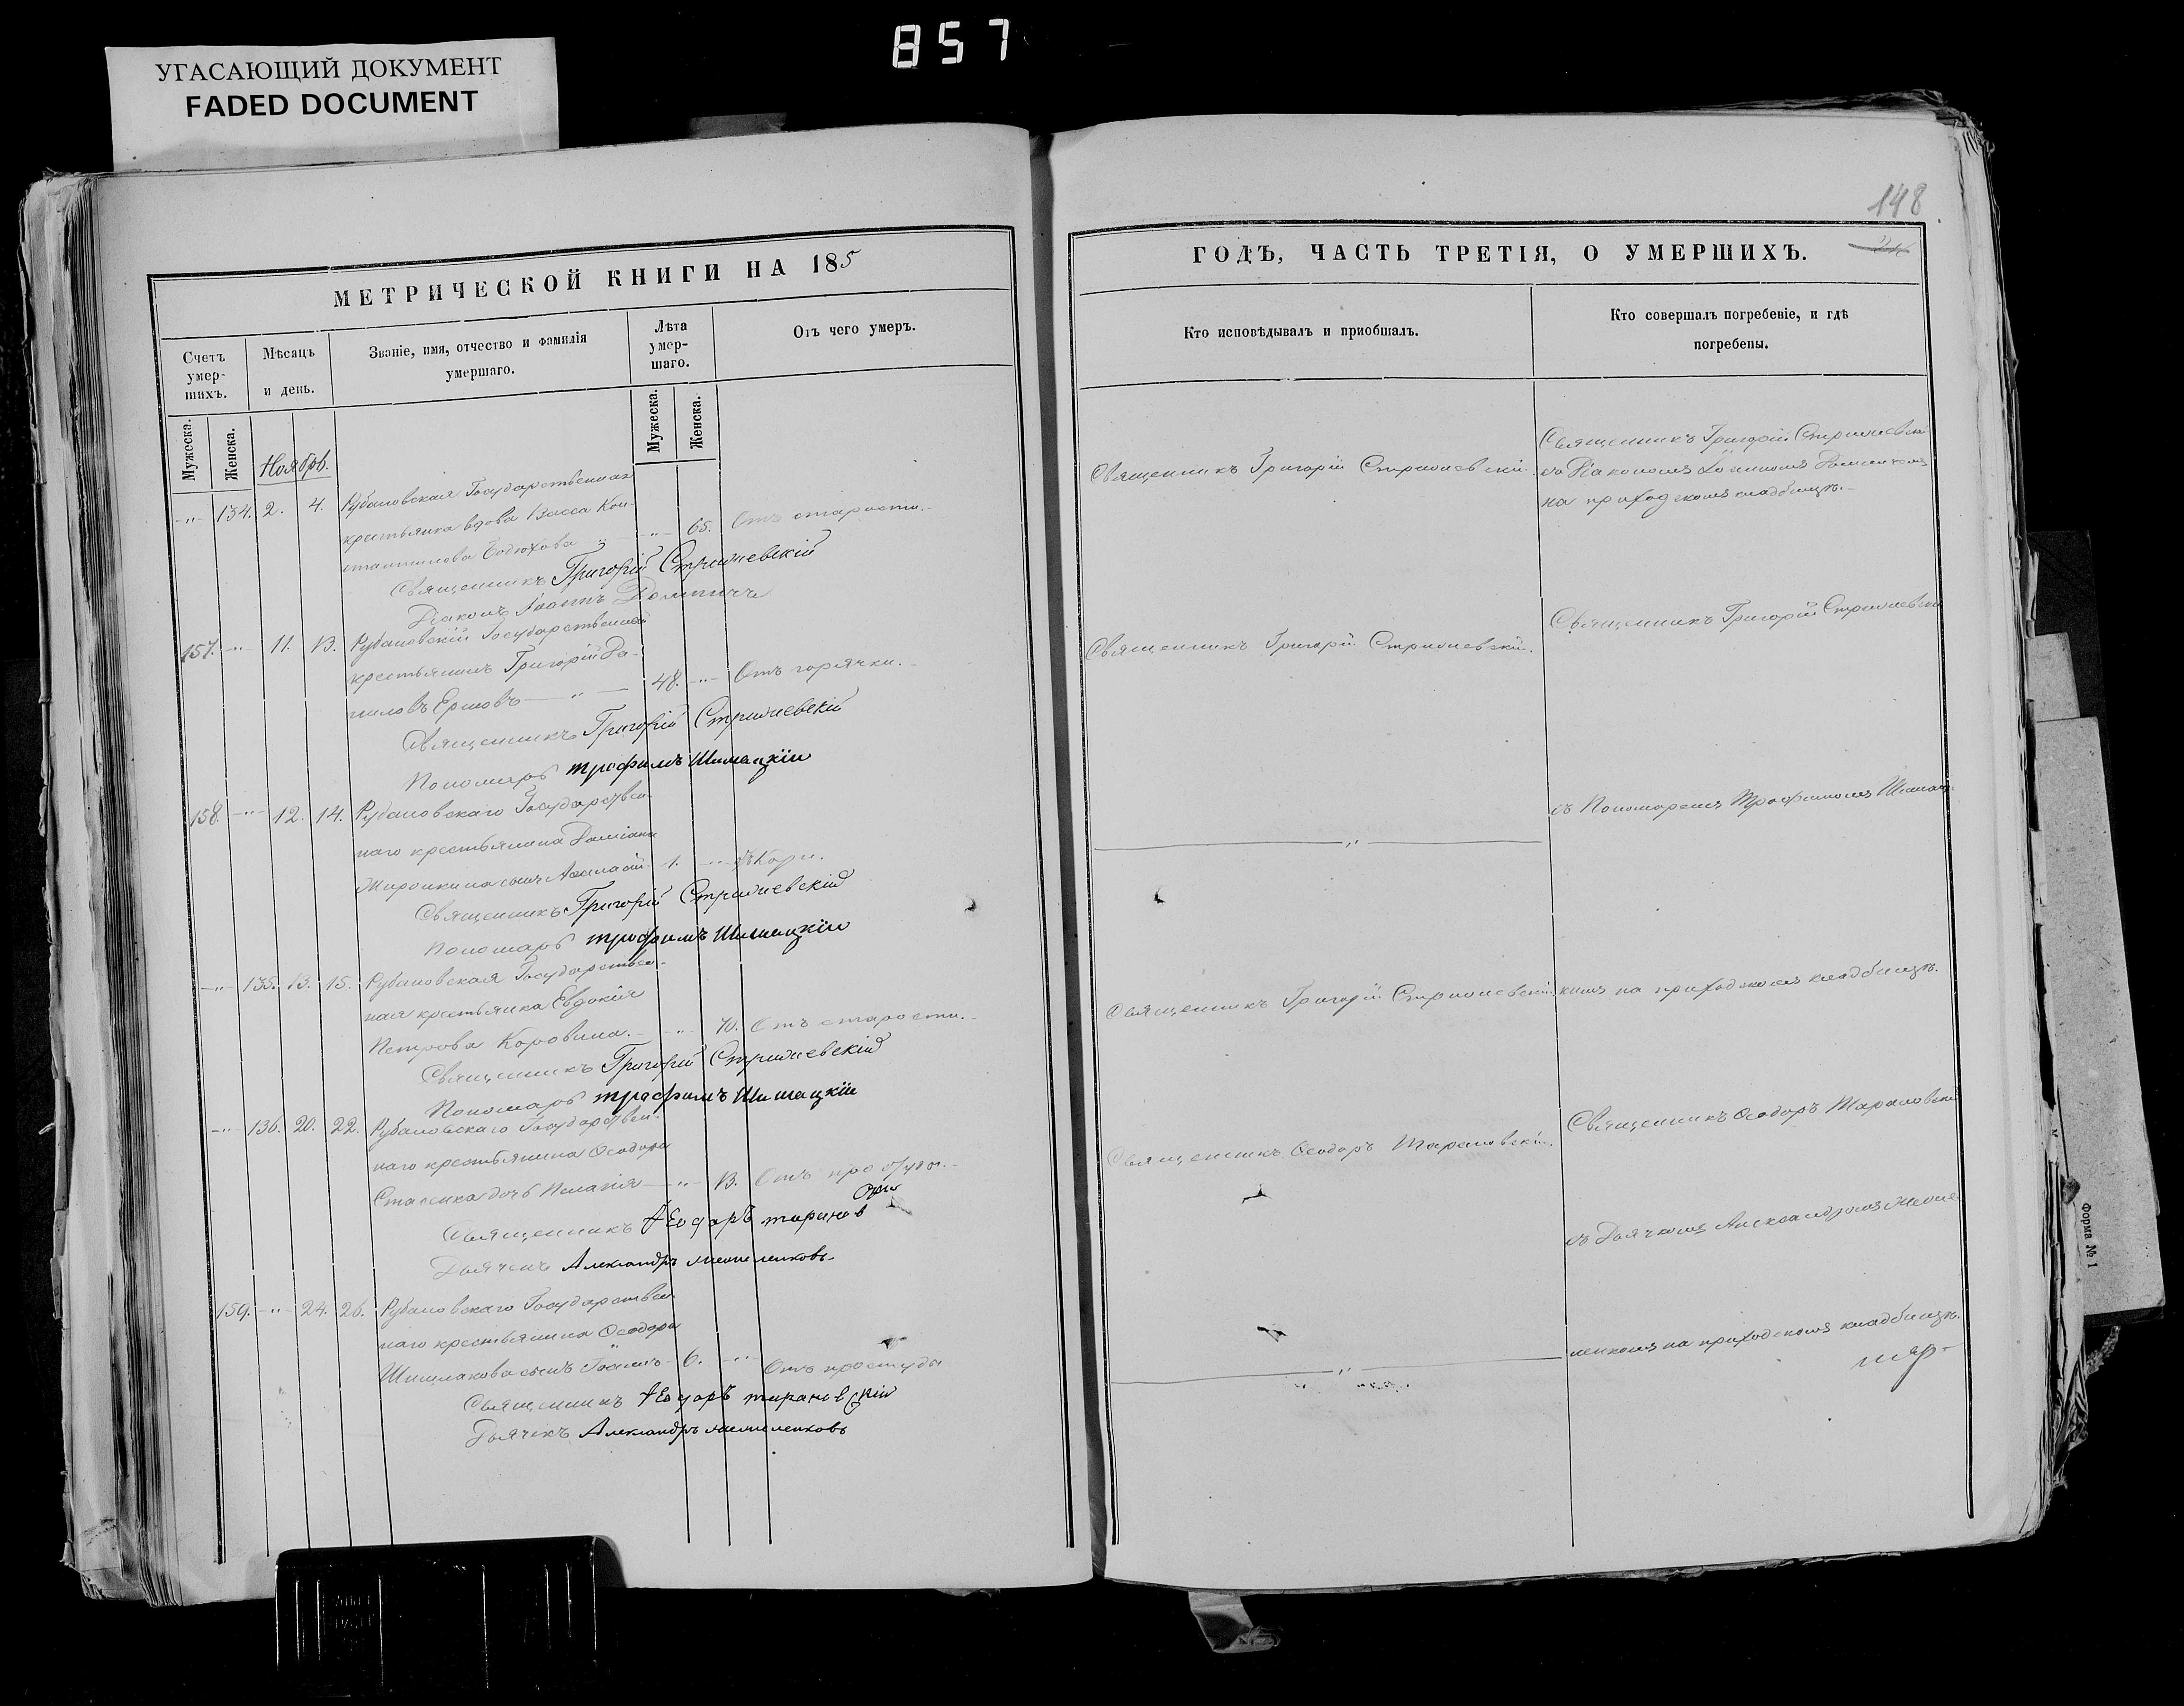 857
УГАСАЮЩИЙ ДОКУМЕНТ
FADED DOCUMENT
МЕТРИЧЕСКОЙ КНИГИ НА 185
Счетъ умер-шихъ.
Мѣсяцъ и день.
Званіе, имя, отчество и фамилія умершаго.
Лѣта умер-шаго.
Отъ чего умеръ.
Мужеска.
Женска.
Мужеска.
Женска.
Ноябрь.
-"- 134. 2. 4. Рубановская Государственная
крестьянка вдова Васса Кон-
стантинова -"- 65. Отъ старости.-
Священникъ Григорій Стрижевскій
Діаконъ Іоаннъ
157. -"- 11. 13. Рубановскій Государственный
крестьянинъ Григорій Да-
ниловъ Ершовъ — " — 48. -"- Отъ горячки.-
Священникъ Григорій Стрижевскій
Пономарь Трофимъ Шимацкій
158. -"- 12. 14. Рубановскаго Государствен-
наго крестьянина Даміана
сынъ Аѳанасій 1. -"- Кори.
Священникъ Григорій Стрижевскій
Пономарь Трофимъ Шимацкій
-"- 135. 13. 15. Рубановская Государствен-
ная крестьянка Евдокія
Петрова Коровина. -"- 70. Отъ старости.-
Священникъ Григорій Стрижевскій
Пономарь Трофимъ Шимацкій
-"- 136. 20. 22. Рубановскаго Государствен-
наго крестьянина Ѳеодора
Стасенка дочь Пелагія -"- 13. Отъ простуды.-
Священникъ Ѳеодоръ
Дьячекъ Александръ
159. -"- 24. 26. Рубановскаго Государствен-
наго крестьянина Ѳеодора
сынъ Іоаннъ - 6. -"- Отъ простуды
Священникъ Ѳеодоръ Тарановскій
Дьячекъ Александръ
148
ГОДЪ, ЧАСТЬ ТРЕТІЯ, О УМЕРШИХЪ.
Кто исповѣдывалъ и пріобщалъ.
Кто совершалъ погребеніе, и гдѣ погребены.
Священникъ Григорій Стрижевскій.
Священникъ Григорій Стрижевскій
съ Діакономъ Іоанномъ
на приходскомъ кладбищѣ.-
Священникъ Григорій Стрижевскій.
Священникъ Григорій Стрижевскій
съ Пономаремъ Трофимомъ Шимац-
— " —
Священникъ Григорій Стрижевскій.
кимъ на приходскомъ кладбищѣ.
Священникъ Ѳеодоръ Тарановскій.
Священникъ Ѳеодоръ Тарановскій
съ Дьячкомъ Александромъ
— " —
ленкомъ на приходскомъ кладбищѣ.
Форма № 1